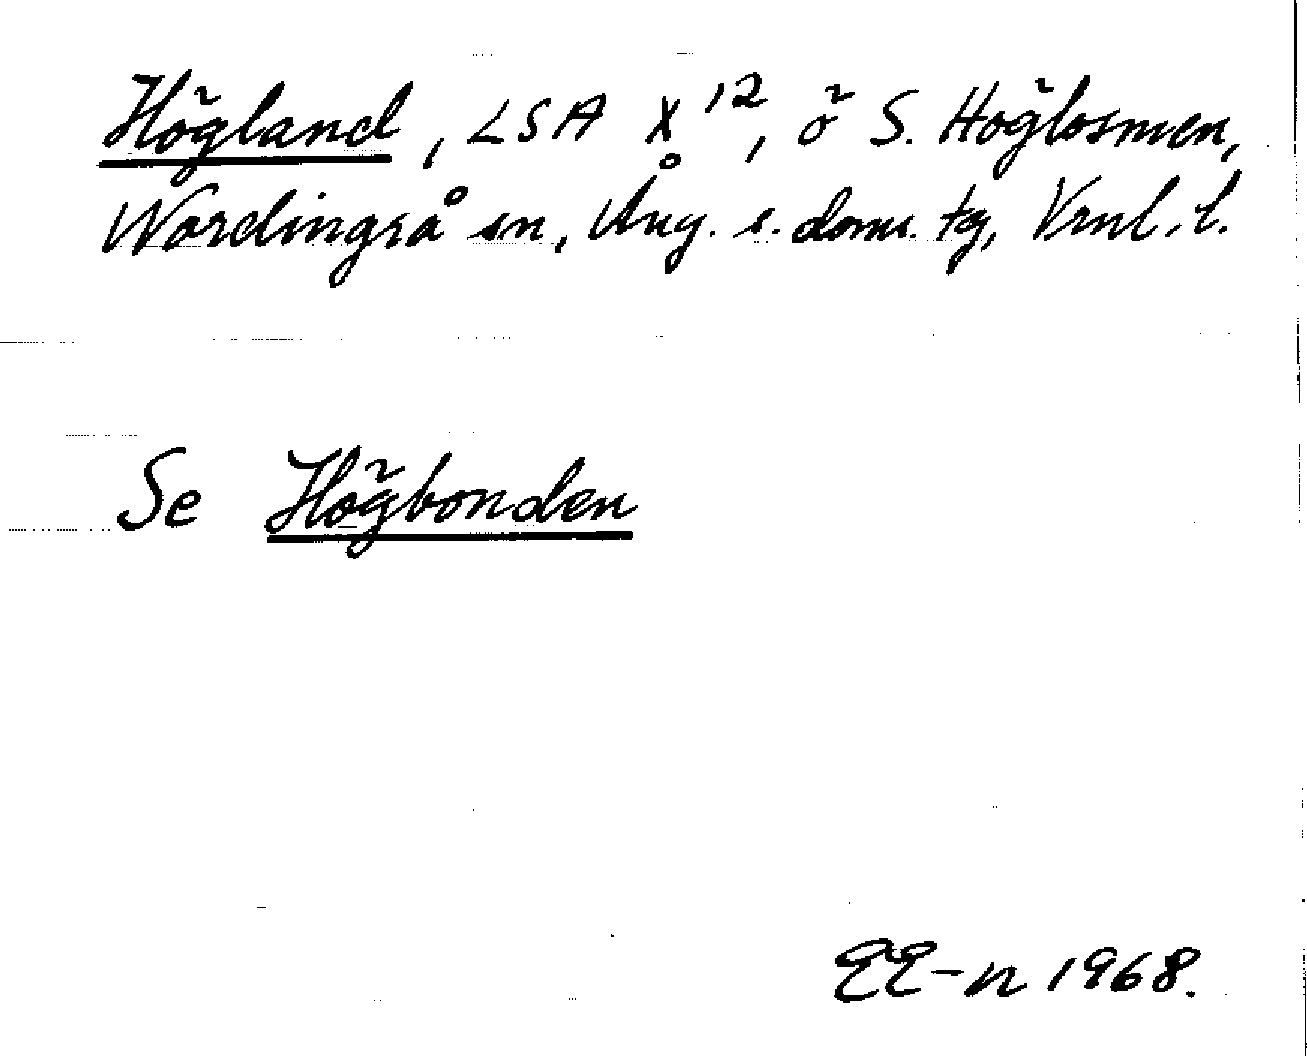 Högland, LSA X 12, ö S. Höglosmen,
Nordingrå sn, Ång. s. doms. tg, Vrnl. l.
Se Högbonden
EE-n 1968.